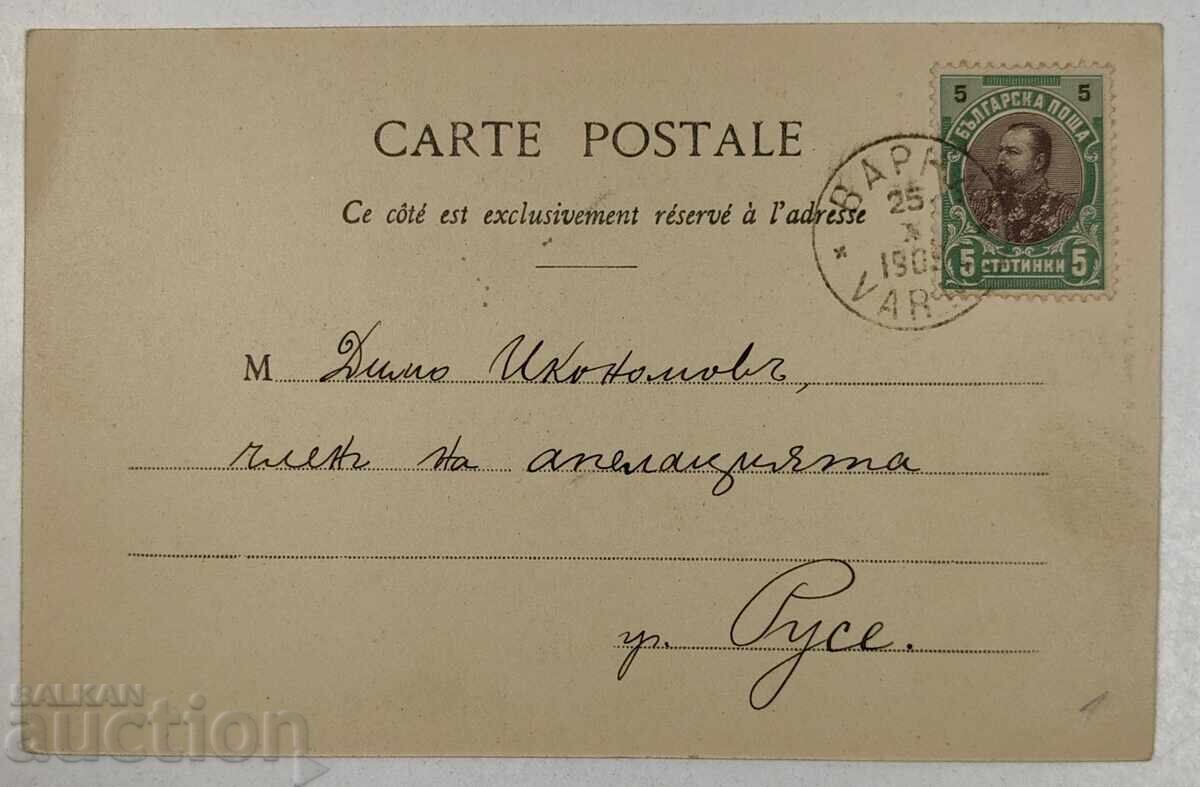 CARTE POSTALE
Ce côté est exclusivement réservé à l'adresse
5 5
БЪЛГАРСКА ПОЩА
5 СТОТИНКИ 5
ВАРН
25
X
190
VAR
М Димо Икономовъ,
членъ на апелацията
гр. Русе.
BALKAN
auction